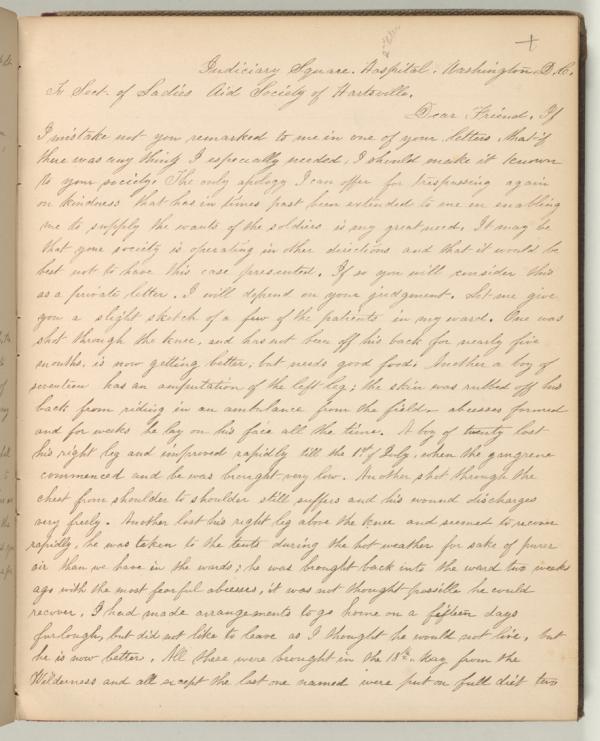 +
Judiciary Square. Hospital. Washington D.C.
To Sect. of Ladies Aid Society of Hartsville.
Dear Friend, If
I mistake not you remarked to me in one of your letters, that if
there was any thing I especially needed, I should make it known
to your society. The only apology I can offer for trespassing again
on kindness that has in times past been extended to me in enabling
me to supply the wants of the soldiers is my great need. It may be
that your society is operating in other directions and that it would be
best not to have this case presented. If so you will consider this
as a private letter. I will depend on your judgment. Let me give
you a slight sketch of a few of the patients in my ward. One was
shot through the knee, and has not been off his back for nearly five
months, is now getting better, but needs good food. Another a boy of
seventeen has an amputation of the left leg; the skin was rubbed off his
back from riding in an ambulance from the field. abcesses formed
and for weeks he lay on his face all the time. A boy of twenty lost
his right leg and improved rapidly till the 1st of July, when the gangrene
commenced and he was brought very low. Another shot through the
chest from shoulder to shoulder still suffers and his wound discharges
very freely. Another lost his right leg above the knee and seemed to recover
rapidly, he was taken to the tents during the hot weather for sake of purer
air than we have in the wards; he was brought back into the ward two weeks
ago with the most fearful abcesses, it was not thought possible he could
recover. I had made arrangements to go home on a fifteen days
furlough, but did not like to leave as I thought he would not live, but
he is now better. All these were brought in the 18th May from the
Wilderness and all except the last one named were put on full diet two